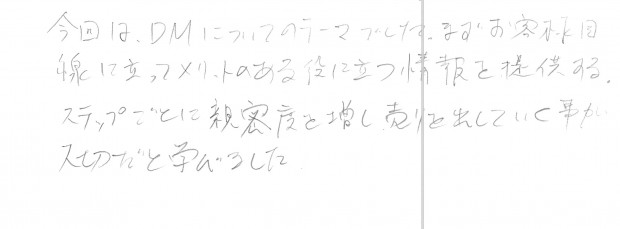 今回は、DMについてのテーマでした。まずお客様目
線に立ってメリットのある役に立つ情報を提供する。
ステップごとに親密度を増し売りを出していく事が
大切だと学びました